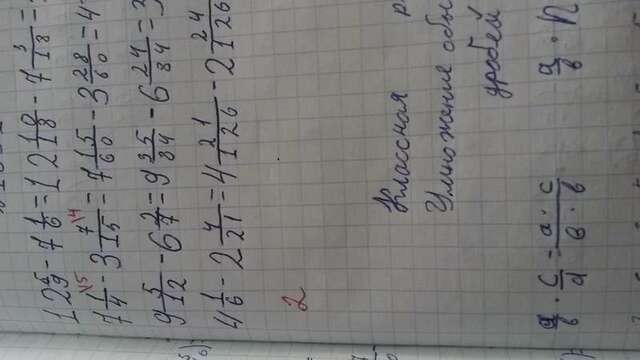 12 5/9 - 7 1/6 = 12 10/18 - 7 3/18 =
7 1/4 \15 - 3 7/15 \4 = 7 15/60 - 3 28/60 = 4
9 5/12 - 6 2/7 = 9 35/84 - 6 24/84 =
4 1/6 - 2 4/21 = 4 21/126 - 2 24/126
2
Классная р
Умножение обы
дробей
a/в · c/d = a · c/в · в
a/в · n